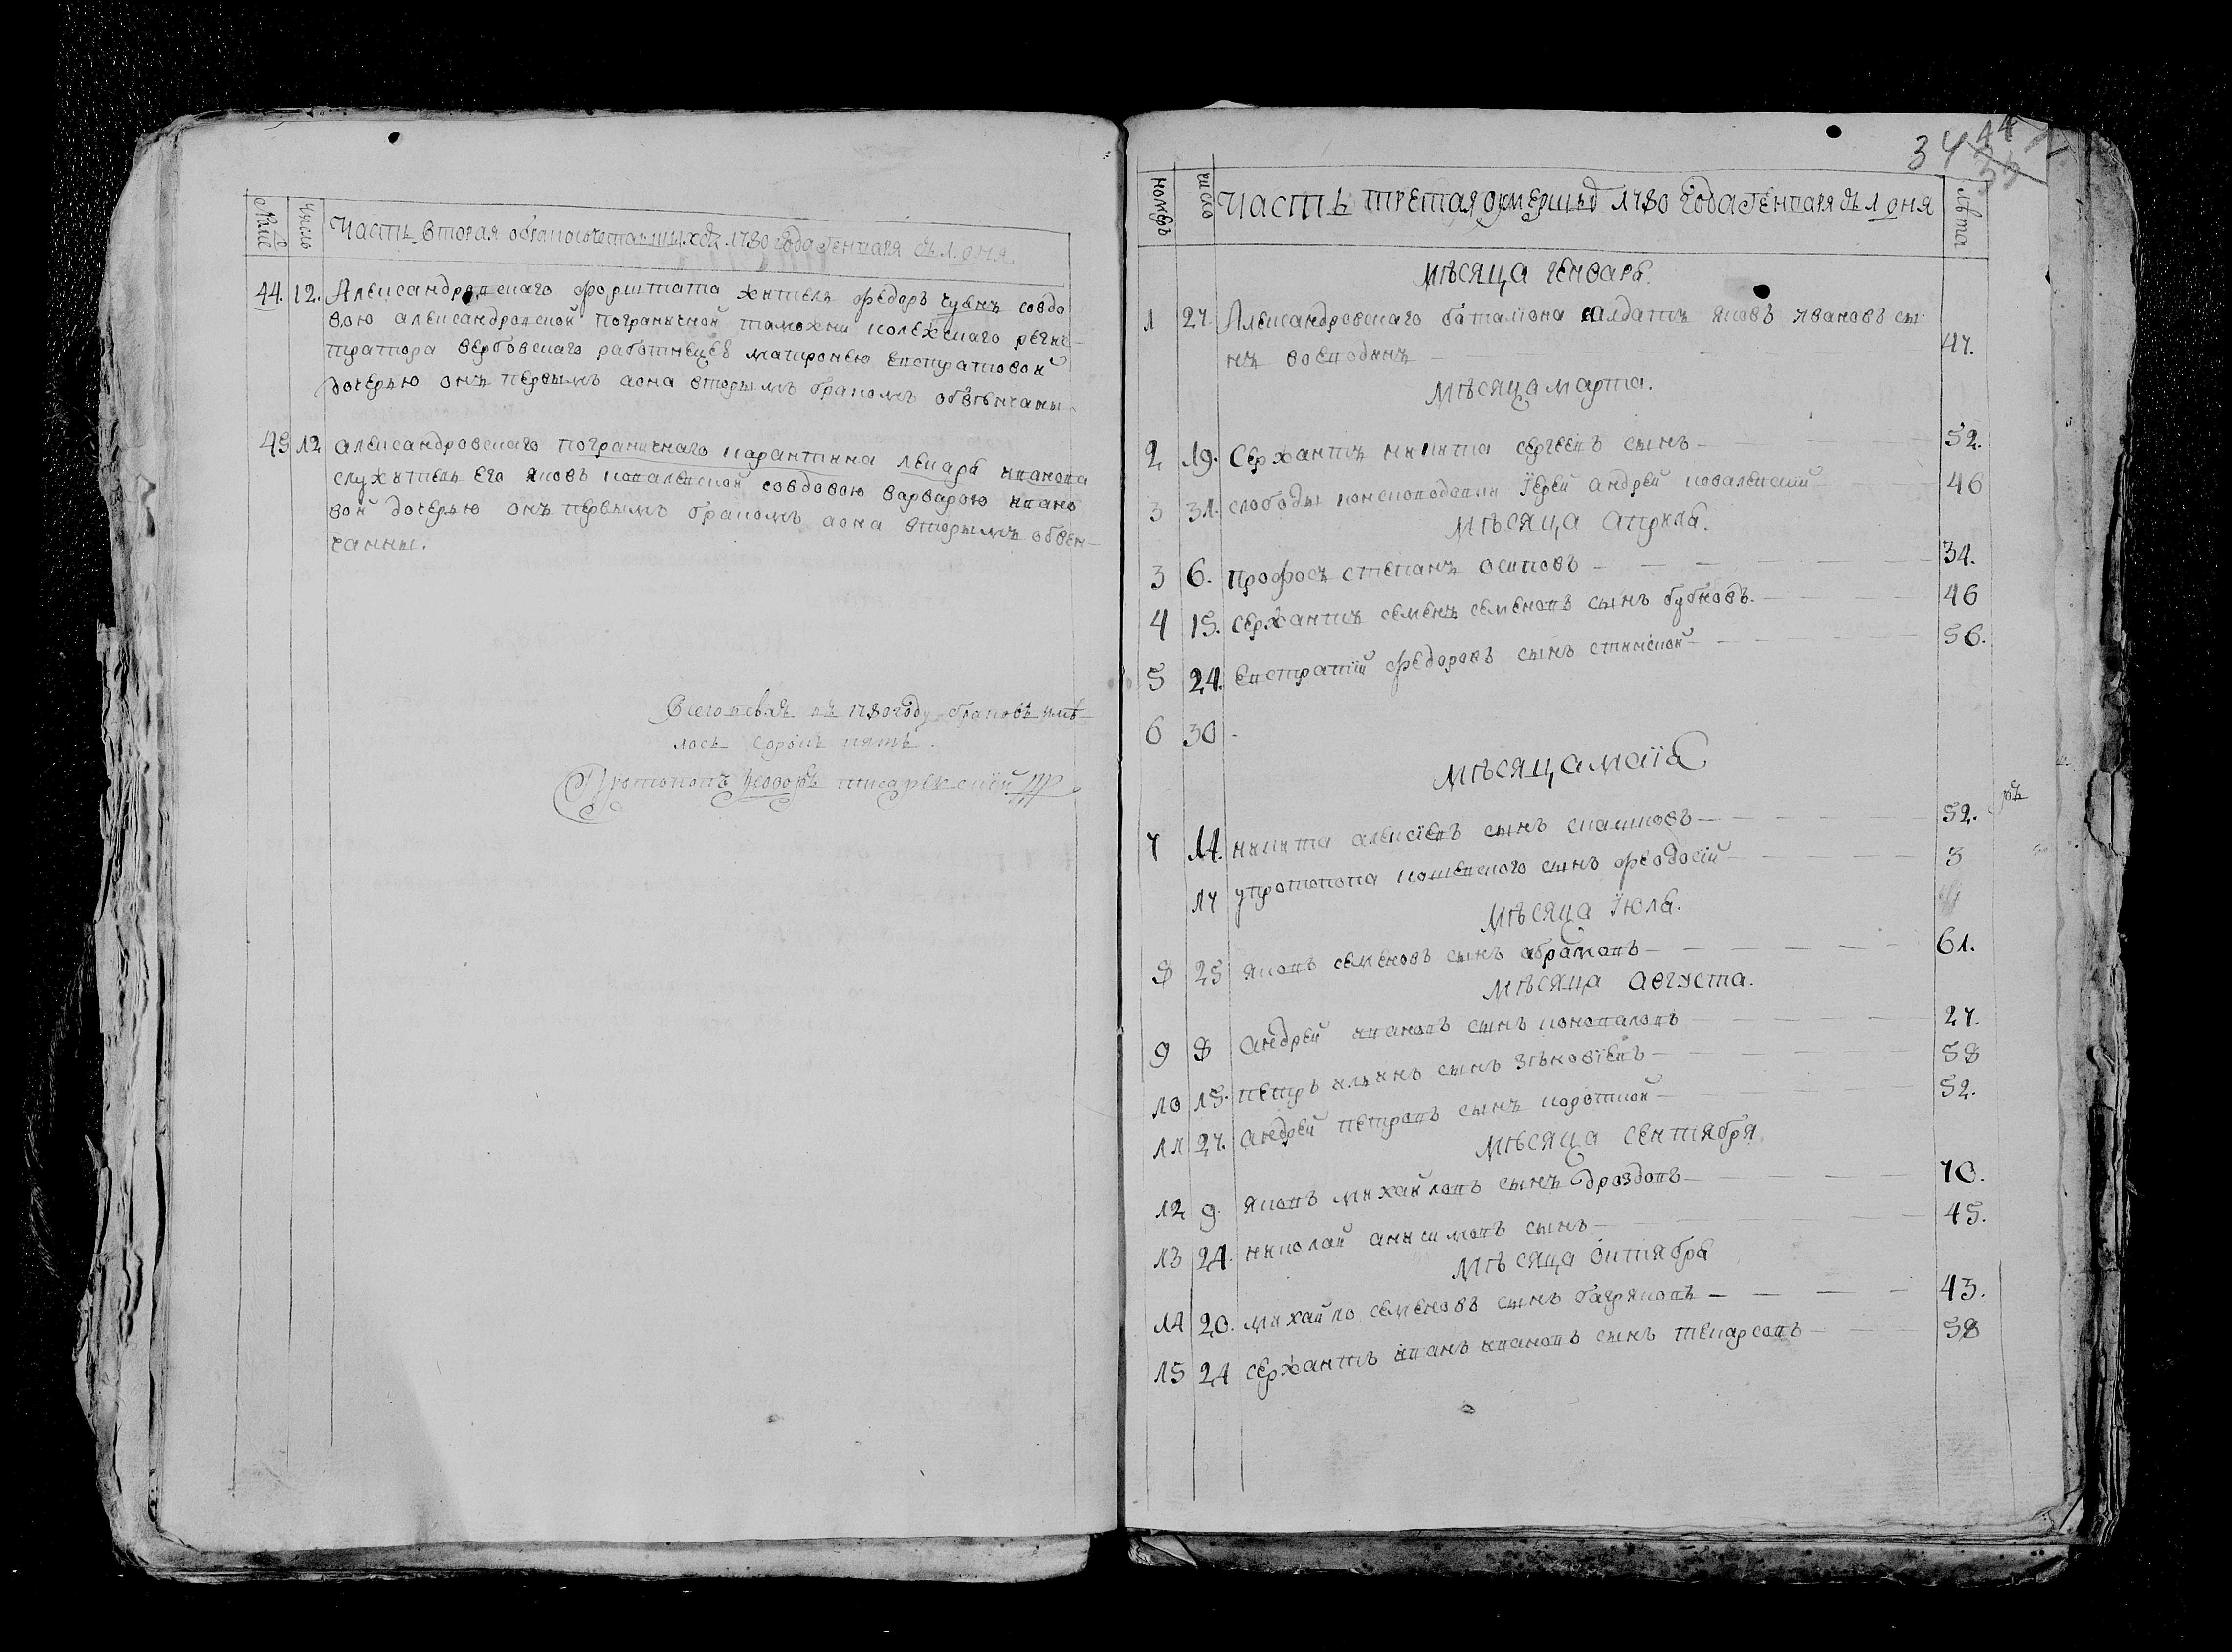 Часть вторая обракосочетавшихся 1780 года генваря съ 1. дня
число
44. 12. Александровскаго форштата житель федоръ чуенъ совдо
вою александровской пограничной таможни колежскаго регис-
тратора вербовскаго работницею матроною евстратовой
дочерью онъ первымъ аона вторымъ бракомъ обвѣнчаны.
45 12 александровскаго пограничнаго карантина лекаря иванова
служитель его яковъ ковалевской совдовою варварою ивано
вой дочерью онъ первымъ бракомъ аона вторымъ обвен-
чанны.
Всего въ 1780 году браковъ имѣ-
лось сорокъ пять.
Протопопъ Ѳеодоръ писаревский
34 44
33
номеръ
число
Часть третая оумершыхъ 1780 года генваря съ 1 дня
лѣта
мѣсяца генваря.
1 27. Александровскаго баталиона салдатъ яковъ ивановъ сы-
нъ воеводинъ 47.
мѣсяца марта.
2 19. Сержантъ никита сергеевъ сынъ 52.
3 31. слободы конскоподавки Їерей андрей ковалевский 46
мѣсяца априля.
3 6. профосъ степанъ осиповъ 34.
4 15. сержантъ семенъ семеновъ сынъ бубновъ. 46
5 24. Евстратїй федоровъ сынъ 56.
6 30.
мѣсяца маїя
7 14. никита алексїевъ сынъ 52.
17 упротопопа сынъ феодосїй 3
мѣсяца Їюля.
8 25 яковъ семеновъ сынъ абрамовъ 61.
мѣсяца августа.
9 8 андрей ивановъ сынъ коноваловъ 27.
10 15. петръ ильинъ сынъ зѣновїевъ 58
11 27. андрей петровъ сынъ короткой 52.
мѣсяца сентября
12 9. яковъ михайловъ сынъ дроздовъ 70.
13 24. николай анисимовъ сынъ 45.
мѣсяца октября
14 20. михайло семеновъ сынъ багряковъ 43.
15 24 сержантъ иванъ ивановъ сынъ текарсовъ 58